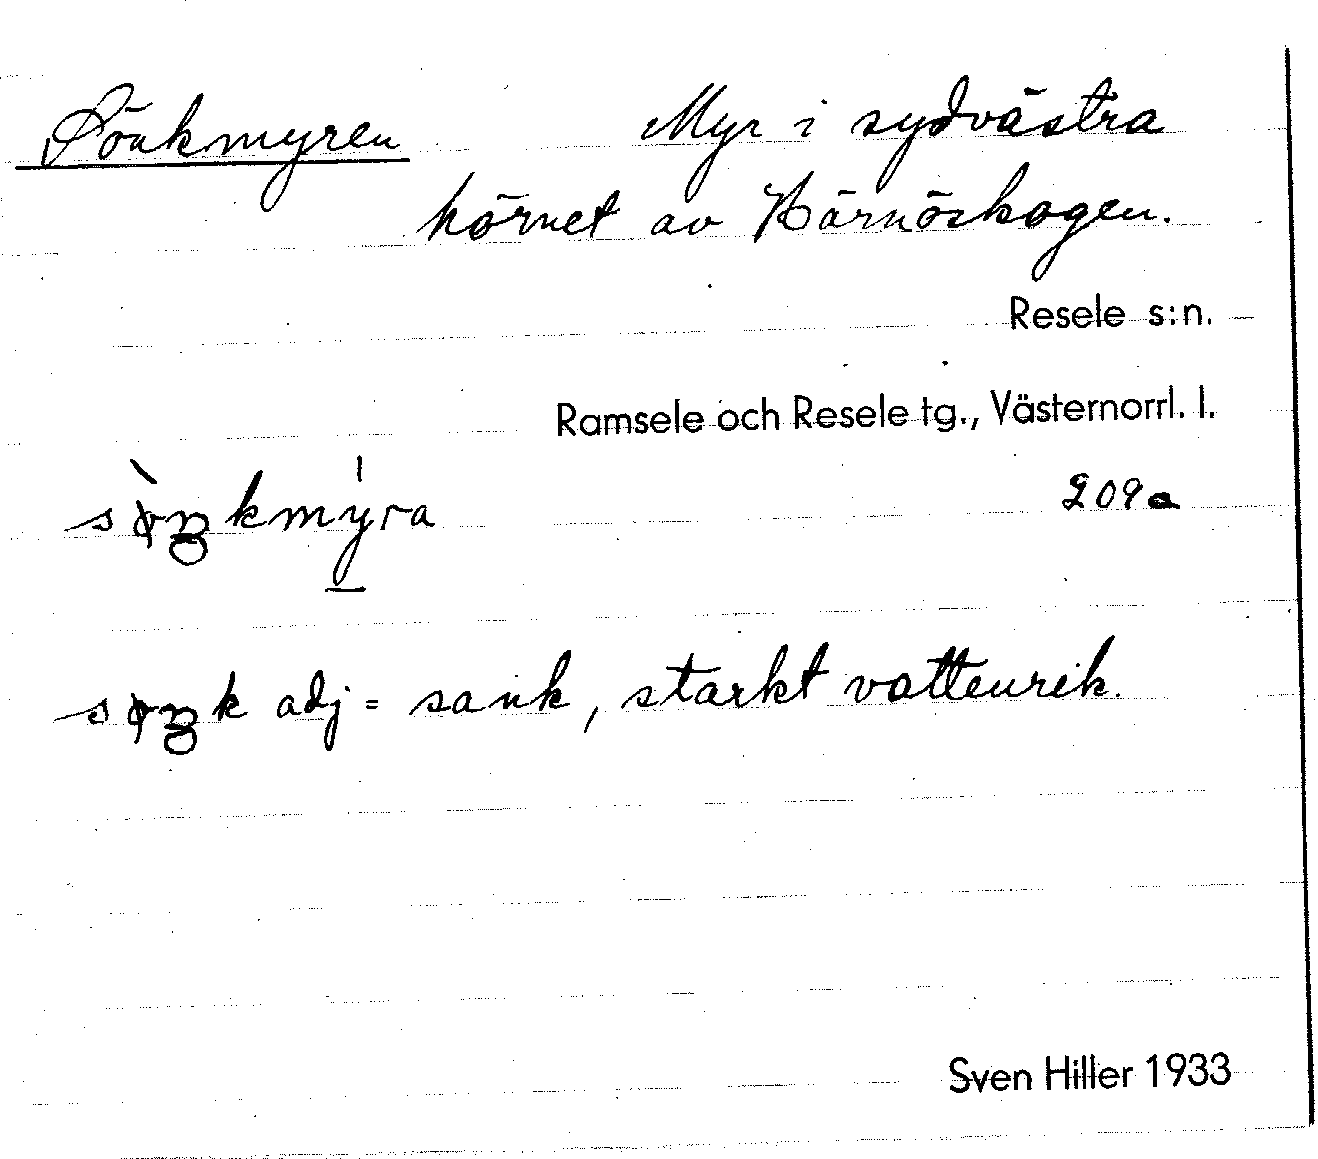 Sönkmyren
Myr i sydvästra
hörnet av Härnöskogen.
Resele s:n.
Ramsele och Resele tg., Västernorrl. l.
209a
adj = sank, starkt vattenrik.
Sven Hiller 1933